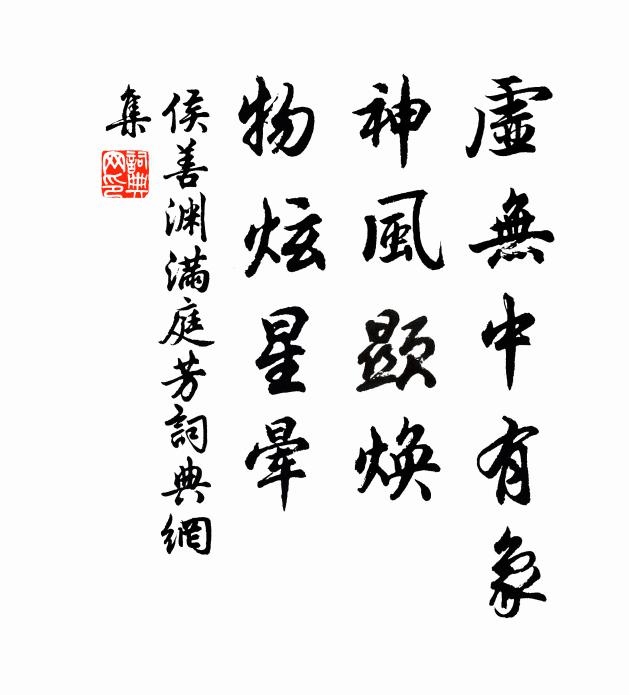 虛無中有象
神風顯煥
物炫星暈
侯善渊滿庭芳詞典網
集
詞典
网印